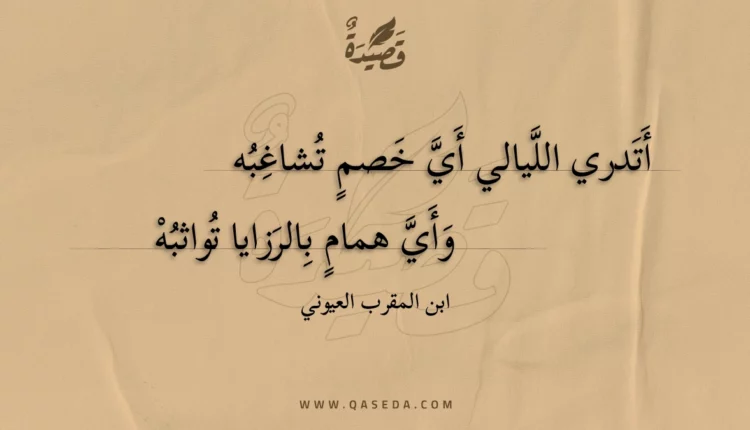 قَصِيْدَةٌ
أَتَدري اللَّيالي أَيَّ خَصمٍ تُشاغِبُه
وَأَيَّ همامٍ بِالرَزايا تُواثبُهْ
ابن المقرب العيوني
WWW.QASEDA.COM